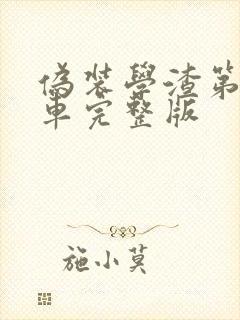 偽装學渣第
車完整版
施小莫